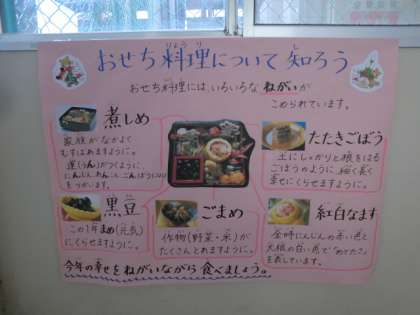 おせち料理について知ろう
りょうり
し
おせち料理には、いろいろなねがいが
こめられています。
煮しめ
家族がなかよく
むすばれますように。
運(うん)がつくように、
をつかいます。
たたきごぼう
土にしっかりと根をはる
ごぼうのように細く長く
幸せにくらせますように。
黒豆
この1年まめ(元気)
にくらせますように。
ごまめ
作物(野菜・米)が
たくさんとれますように。
紅白なます
金時にんじんの赤い色と
大根の白い色で"めでたさ"
を表しています。
今年の幸せをねがいながら食べましょう。